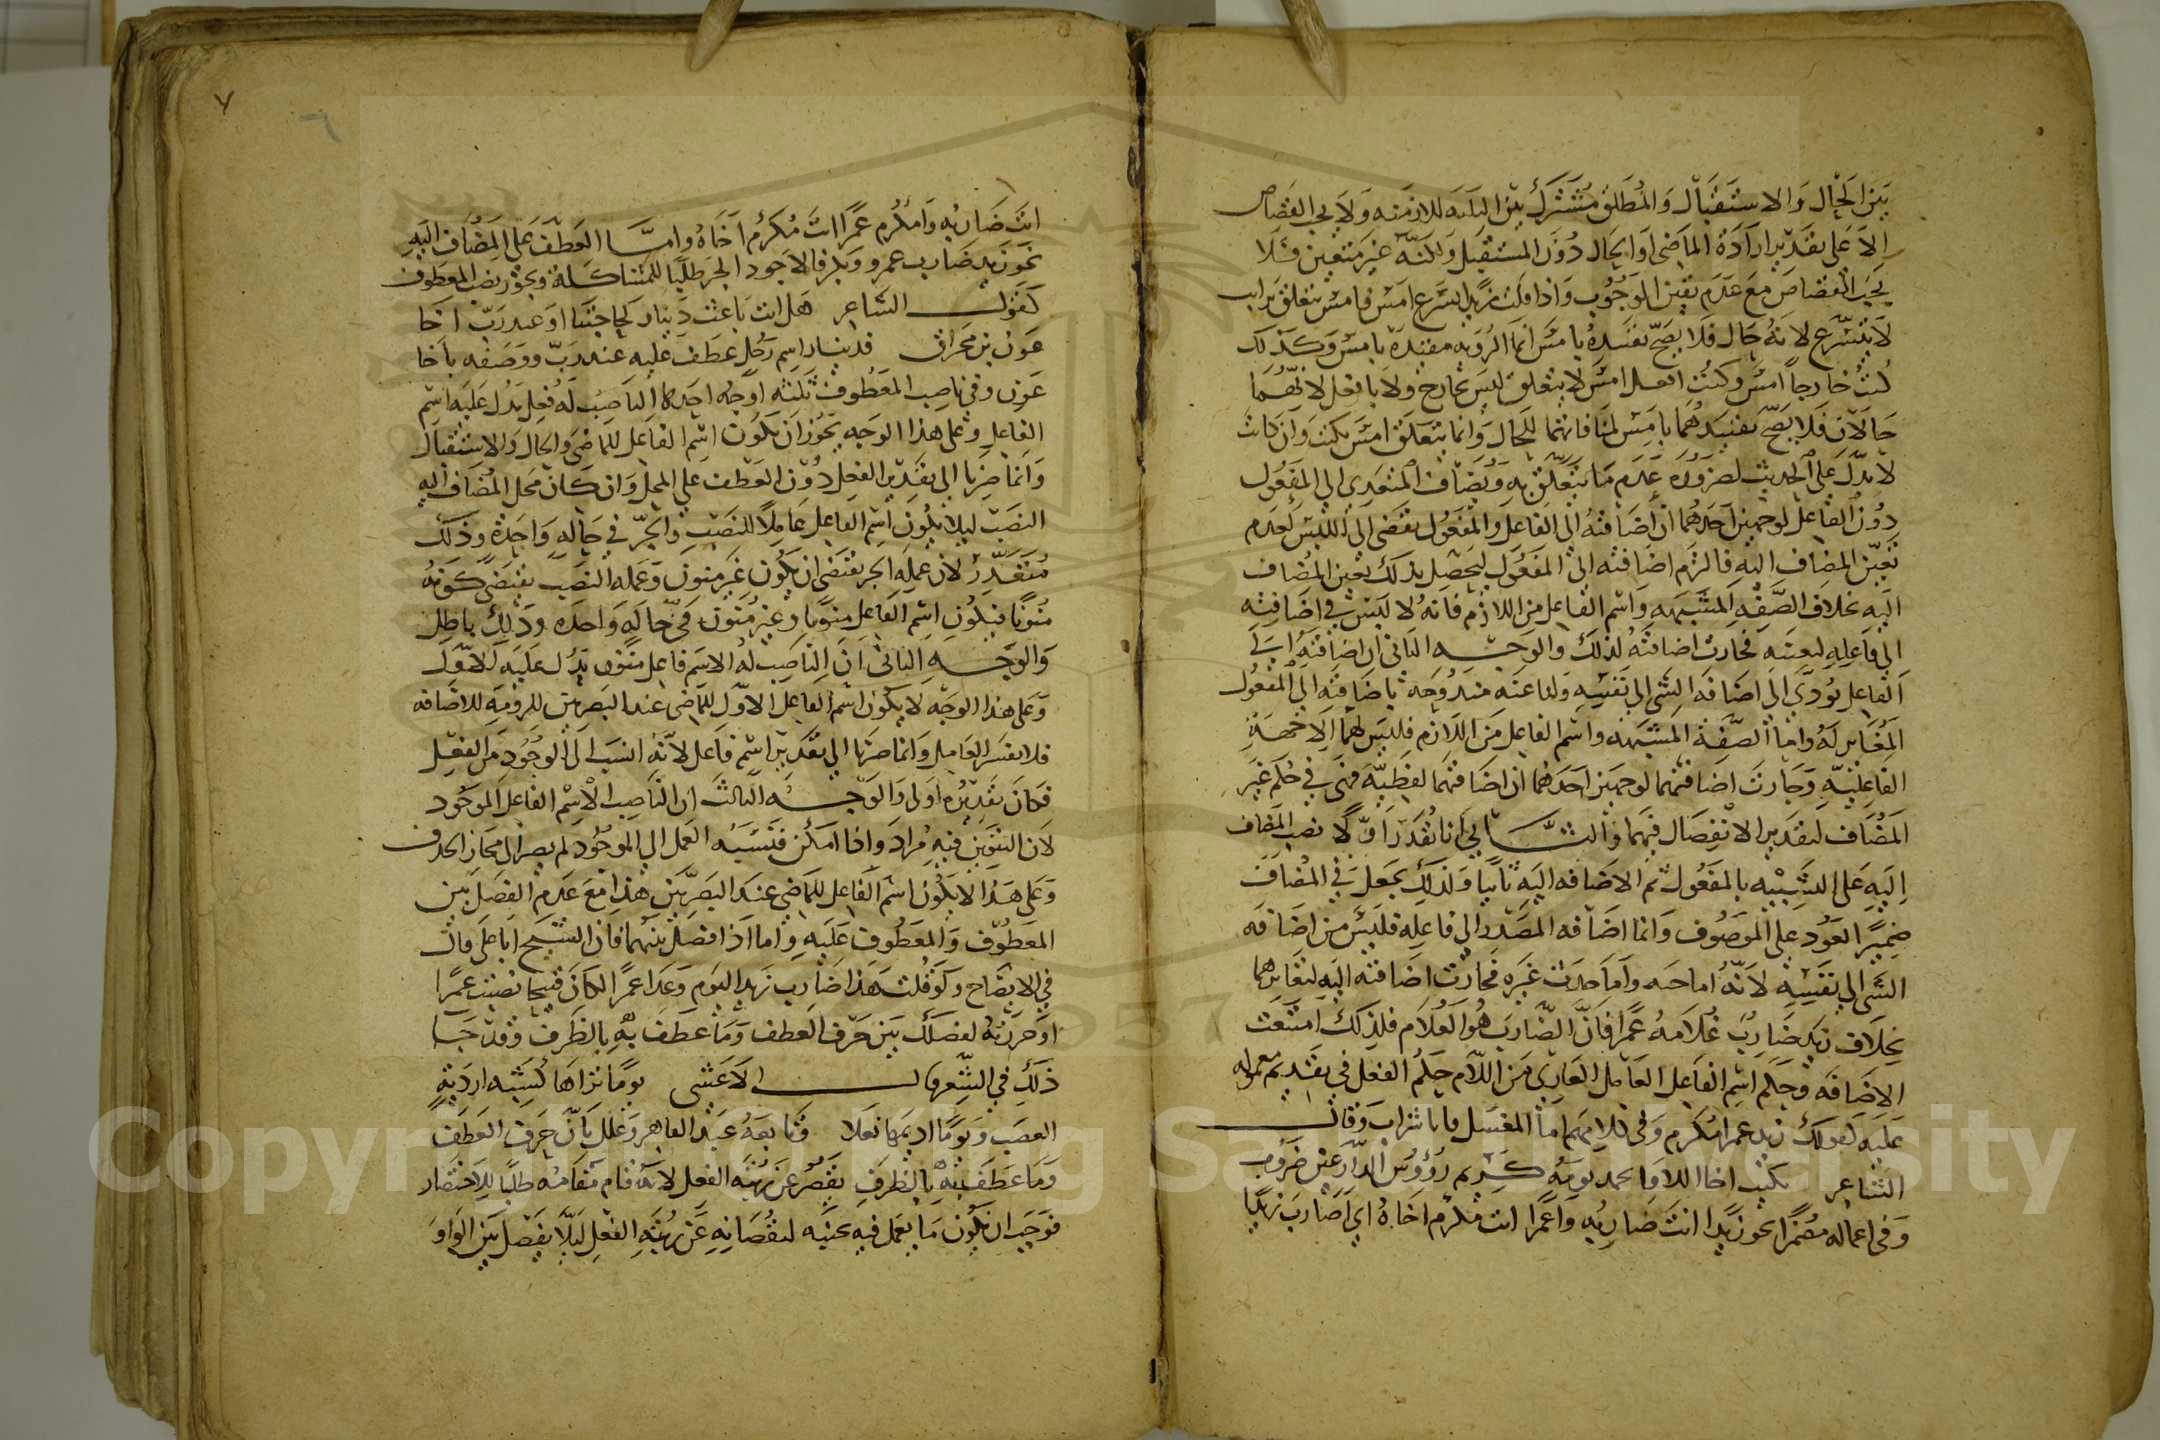 بين الحال والاستقبال والمطلق مشترك بين الثلثه للازمنه ولا يجب القصاص
الا على تقدير ارادة الماضى او الحال دون المستقبل ولكنه غير متعين فلا
يجب القصاص مع عدم تعين الوجوب واذا قلت زيد اسرع امس فامس يتعلق
لا بتسرع لانه حال فلا يصح تقييده بامس انما الرويه مقيدة بامس وكذلك
كنت خارجا امس وكنت افعل امس لا يتعلق امس بخارج ولا بافعل لانهما
حالان فلا يصح تقييدهما بامس لمنافاتهما للحال وانما يتعلق امس بكنت وان كانت
لا تدل على الحدث لضرورة عدم ما يتعلق به ويضاف المتعدى الى المفعول
دون الفاعل لوجهين احدهما ان اضافته الى الفاعل والمفعول تفضى الى اللبس لعدم
تعين المضاف اليه فالزم اضافته الى المفعول ليحصل بذلك تعين المضاف
اليه بخلاف الصفه المشبهه واسم الفاعل من اللازم فانه لا لبس فى اضافته
الى فاعله لتعينه فجازت اضافته لذلك والوجه الثانى ان اضافته الى
الفاعل يودى الى اضافه الشى الى نفسه ولنا عنه مندوحة باضافته الى المفعول
المغاير له واما الصفة المشبهه واسم الفاعل من اللازم فليس لهما الا جهة
الفاعلية وجازت اضافتهما لوجهين احدهما ان اضافتهما لفظية فهى فى حكم غير
المضاف لتقدير الانفصال فيهما والثانى انا نقدر اولا نصب المضاف
اليه على التشبيه بالمفعول ثم الاضافه اليه ثانيا ولذلك يجعل فى المضاف
ضميرا لعود على الموصوف وانما اضافه المصدر الى فاعله فليس من اضافه
الشى الى نفسه لانه اما حدث غيره فجازت اضافته اليه لتغايرهما
بخلاف زيد ضارب غلامه عمرا فان الضارب هو الغلام فلذلك امتنعت
الاضافه وحكم اسم الفاعل العامل العارى من اللام حكم الفعل فى تقديم معموله
عليه كقولك زيد عمرا مكرم وفى كلامهم اما العسل فانا شراب وقال
الشاعر بكيت اخا اللاوا يحمد يومه كريم رؤوس الدارعين ضروب
وفى اعماله مضمرا نحو زيدا انت ضاربه واعمرا انت مكرم اخاه اى اضارب زيدا
انت ضاربه وامكرم عمرا انت مكرم اخاه واما العطف على المضاف اليه
نحو زيد ضارب عمرو وبكر فالاجود الجر طلبا للمشاكلة ويجوز نصب المعطوف
كقول الشاعر هل انت باعث دينار لحاجتنا او عبد رب اخا
عون بن مخراق فدينار اسم رجل عطف عليه عبد رب ووصفه باخا
عون وفى ناصب المعطوف ثلثه اوجه احدها الناصب له فعل يدل عليه اسم
الفاعل وعلى هذا الوجه يجوز ان يكون اسم الفاعل للماضى والحال والاستقبال
وانما صرنا الى تقدير الفعل دون العطف على المحل وان كان محل المضاف اليه
النصب ليلا يكون اسم الفاعل عاملا للنصب والجر فى حالة واحدة وذلك
متعذر لان عمله الجر يقتضى ان يكون غير منون وعمله النصب يقتضى كونه
منونا فيكون اسم الفاعل منونا وغير منون فى حاله واحده وذلك باطل
والوجه الثانى ان الناصب له الاسم فاعل منون يدل عليه الاول
وعلى هذا الوجه لا يكون اسم الفاعل الاول للماضى عند البصريين للزومه للاضافه
فلا يفسر العامل وانما صرنا الى تقدير اسم فاعل لانه انسب الى الوجود من الفعل
فكان تقديره اولى والوجه الثالث ان الناصب الاسم الفاعل الموجود
لان التنوين فيه مراد واذا امكن فنسبه العمل الى الموجود لم يصر الى مجاز الحذف
وعلى هذا لا يكون اسم الفاعل للماضى عند البصريين هذا مع عدم الفصل بين
المعطوف والمعطوف عليه واما اذا فصل بينهما فان الشيخ ابا على قال
فى الايضاح ولو قلت هذا ضارب زيد اليوم وغدا عمرا لكان قبيحا نصبت عمرا
او جررته لفصلك بين حرف العطف وما عطف به بالظرف وقد جا
ذلك فى الشعر قال الاعشى يوما تراها كشبه اردية
العصب ويوما اديمها نغلا وتابعه عبد القاهر وعلل بان حرف العطف
وما عطف به بالظرف يقصر عن رتبه الفعل لانه قام مقامه طلبا للاختصار
فوجب ان يكون ما يعمل فيه بجنبه لنقصانه عن رتبه الفعل ليلا يفصل بين الواو
٧